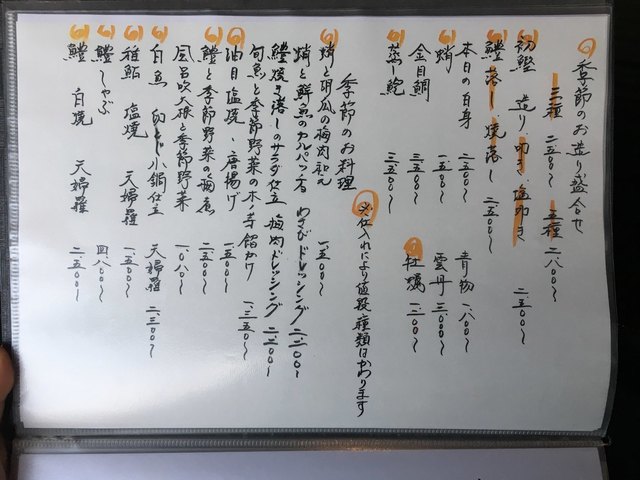 季節のお造り盛合せ
三種 二五〇〇〜 五種 二八〇〇〜
初鰹 造り、叩き、塩叩き 二五〇〇〜
鱧 落し 焼落し 二五〇〇〜
本日の白身 二三〇〇〜 青物 一八〇〇〜
蛸 一五〇〇〜 雲丹 三〇〇〇〜
金目鯛 三五〇〇〜 牡蠣 一二〇〇〜
蒸し鮑 三五〇〇〜
※仕入れにより値段種類はかわります
季節のお料理
蛸と胡瓜の梅肉和え 一五〇〇〜
蛸と鮮魚のカルパッチョ わさびドレッシング 二二〇〇〜
鱧焼き落しのサラダ仕立 梅肉ドレッシング 二二〇〇〜
旬魚と季節野菜の木の芽餡かけ 一三五〇〜
油目 塩焼 唐揚げ 一五〇〇〜
鱧と季節野菜の 二五〇〇〜
風呂吹大根と季節野菜 一〇八〇〜
白魚 小鍋仕立 天婦羅 二三〇〇〜
稚鮎 塩焼 天婦羅 一五〇〇〜
鱧しゃぶ 四八〇〇〜
鱧 白焼 天婦羅 二五〇〇〜